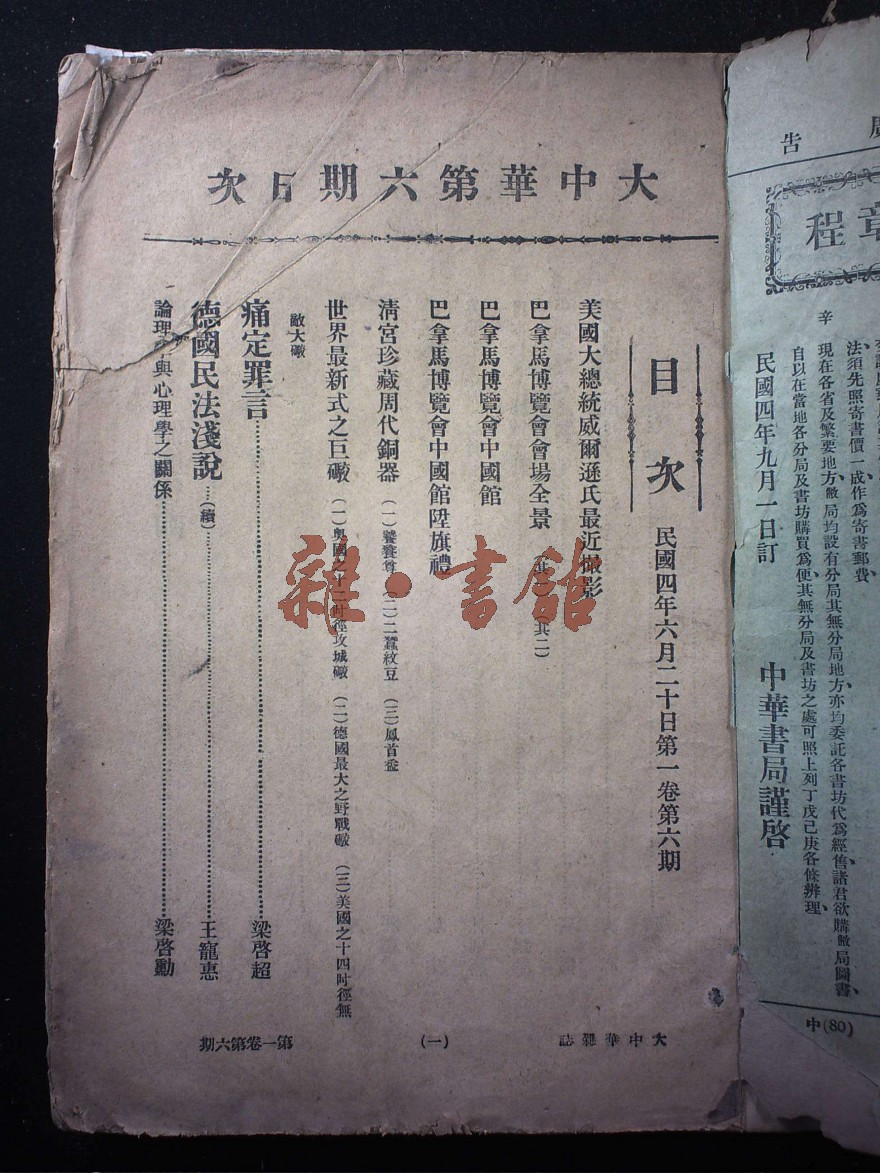 大中華第六期目次
目次
民國四年六月二十日第一卷第六期
美國大總統威爾遜氏最近撮影
巴拿馬博覽會會場全景 (其二)
巴拿馬博覽會中國館
巴拿馬博覽會中國館陞旗禮
清宮珍藏周代銅器 (一)饕餮尊 (二)蠶紋豆 (三)鳳首盉
世界最新式之巨礮 (一)奧國之十二吋徑攻城礮 (二)德國最大之野戰礮 (三)美國之十四吋徑無
敵大礮
痛定罪言 梁啓超
德國民法淺說 (續) 王寵惠
論理學與心理學之關係 梁啓勳
大中華雜誌
(一)
第一卷第六期
雜·書館
廣告
章程
法須先照寄書價一成作為寄書郵費
辛 現在各省及繁要地方敝局均設有分局其無分局地方亦均委託各書坊代為經售諸君欲購敝局圖書
自以在當地各分局及書坊購買為便其無分局及書坊之處可照上列丁戊己庚各條辦理
民國四年九月一日訂 中華書局謹啓
中(80)